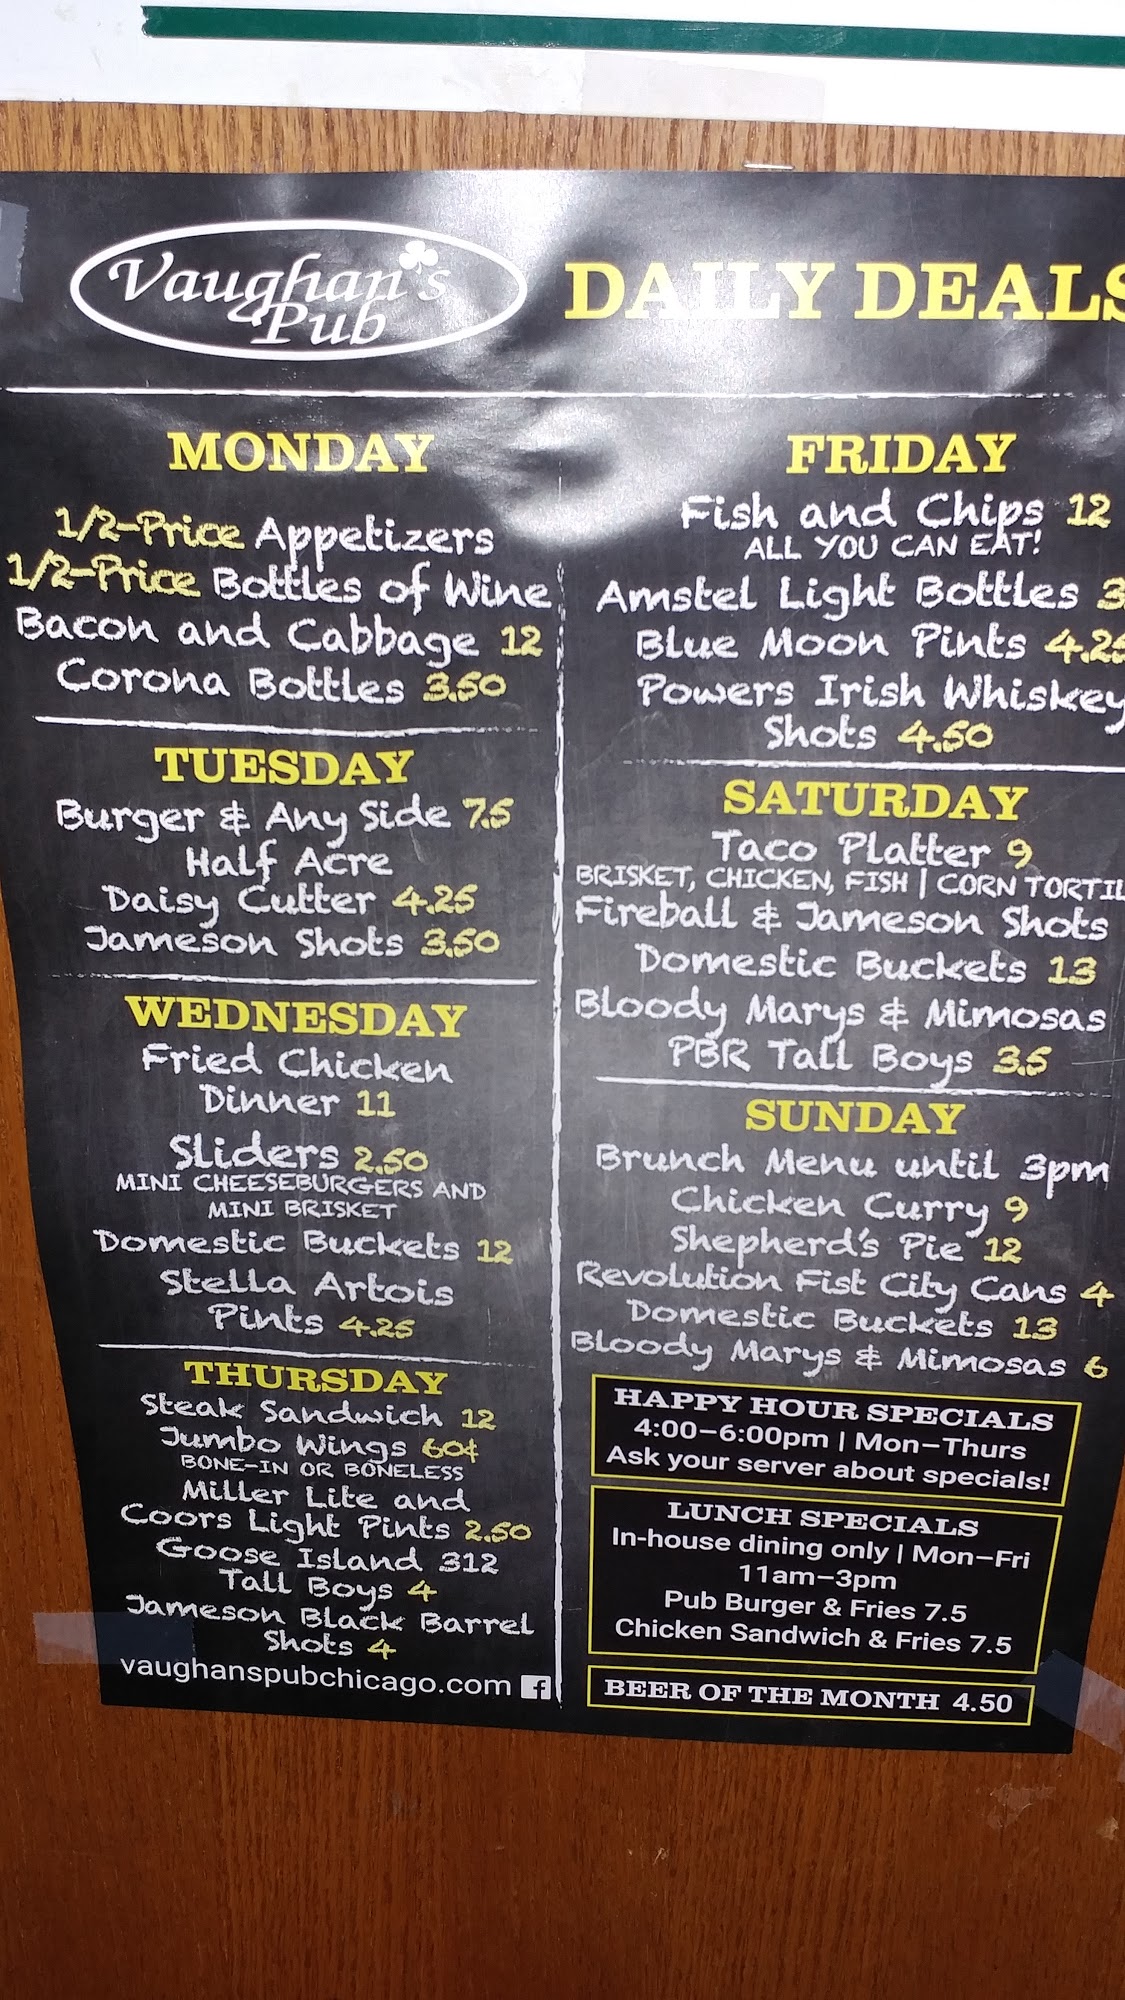 Vaughan's
Pub
DAILY DEALS
MONDAY
1/2-Price Appetizers
1/2-Price Bottles of Wine
Bacon and Cabbage 12
Corona Bottles 3.50
TUESDAY
Burger & Any Side 7.5
Half Acre
Daisy Cutter 4.25
Jameson Shots 3.50
WEDNESDAY
Fried Chicken
Dinner 11
Sliders 2.50
MINI CHEESEBURGERS AND
MINI BRISKET
Domestic Buckets 12
Stella Artois
Pints 4.25
THURSDAY
Steak Sandwich 12
Jumbo Wings 60¢
BONE-IN OR BONELESS
Miller Lite and
Coors Light Pints 2.50
Goose Island 312
Tall Boys 4
Jameson Black Barrel
Shots 4
vaughanspubchicago.com
FRIDAY
Fish and Chips 12
ALL YOU CAN EAT!
Amstel Light Bottles
Blue Moon Pints 4.25
Powers Irish Whiskey
Shots 4.50
SATURDAY
Taco Platter 9
BRISKET, CHICKEN, FISH | CORN
Fireball & Jameson Shots
Domestic Buckets 13
Bloody Marys & Mimosas
PBR Tall Boys 3.5
SUNDAY
Brunch Menu until 3pm
Chicken Curry 9
Shepherd's Pie 12
Revolution Fist City Cans 4
Domestic Buckets 13
Bloody Marys & Mimosas 6
HAPPY HOUR SPECIALS
4:00-6:00pm | Mon-Thurs
Ask your server about specials!
LUNCH SPECIALS
In-house dining only | Mon-Fri
11am-3pm
Pub Burger & Fries 7.5
Chicken Sandwich & Fries 7.5
BEER OF THE MONTH 4.50